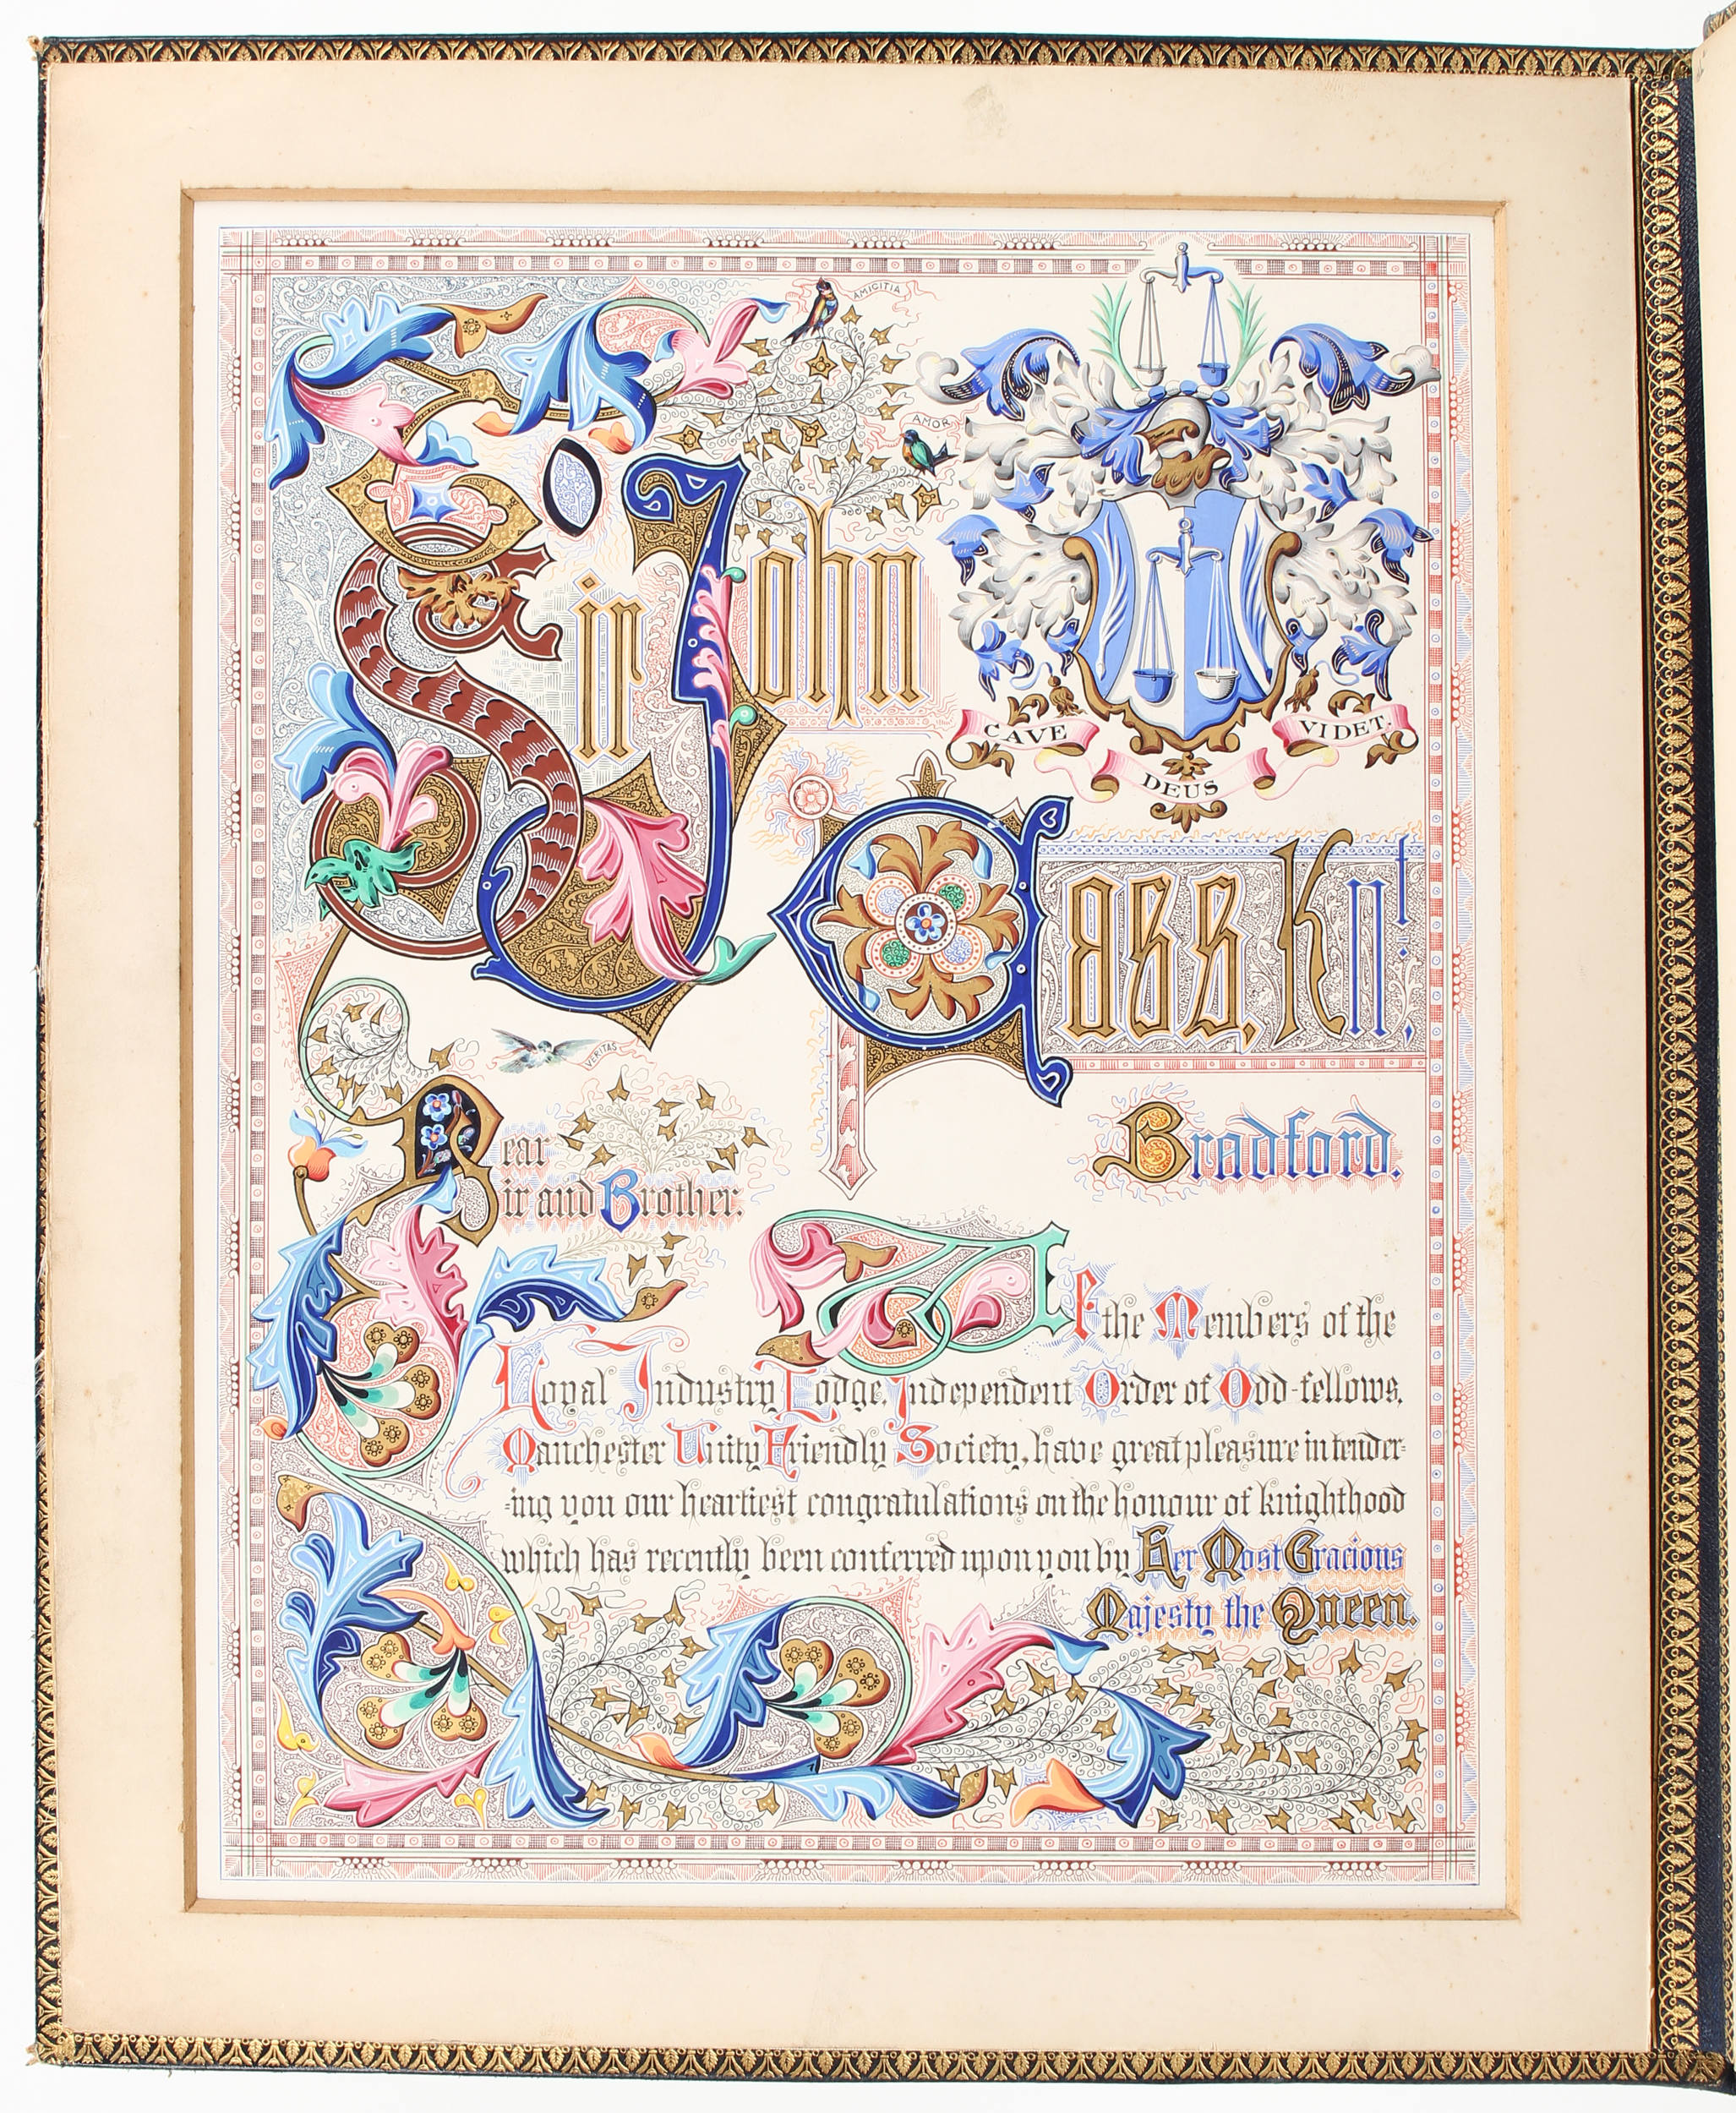 AMICITIA
AMOR
Sir John
CAVE DEUS VIDET.
Cass, Knt.
VERITAS
Bradford.
Dear
Sir and Brother.
WE the Members of the
Loyal Industry Lodge, Independent Order of Odd-fellows,
Manchester Unity Friendly Society, have great pleasure in tender=
=ing you our heartiest congratulations on the honour of knighthood
which has recently been conferred upon you by Her Most Gracious
Majesty the Queen.